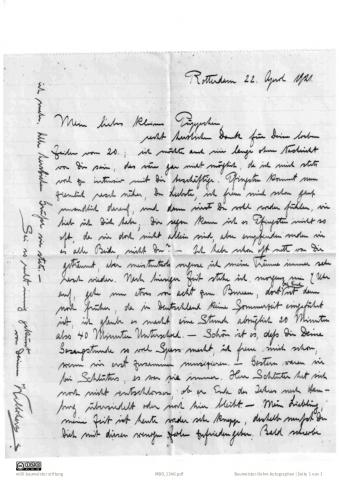 Rotterdam 22. April 1921.
Mein liebes kleines
recht herzlichen Dank für Deine lieben
Zeilen vom 20.; ich möchte auch nie lange ohne Nachricht
von Dir sein, das wäre gar nicht möglich, da ich mich stets
viel zu intensiv mit Dir beschäftige. Pfingsten kommt nun
ziemlich rasch näher Du Liebste, ich freu mich schon ganz
unendlich darauf, und dann wirst Du wohl fühlen, wie
lieb ich Dich habe; Dir sagen kann ich es Pfingsten nicht so
oft da wir doch nicht allein sind, aber empfinden werden wir
es alle Beide nicht Du? – Ich hab schon oft nett von Dir
geträumt, aber vergesse ich meine Träume immer sehr
rasch wieder. Nach hiesiger Zeit stehe ich morgens um 7 Uhr
auf, geh um etwas vor acht zum Bureau, dort ist dann
noch früher, da in Deutschland keine Sommerzeit eingeführt
ist, ich glaube es macht eine Stunde abzüglich 20 Minuten
also 40 Minuten Unterschied. – Schön ist es, daß Dir Deine
Gesangstunde so viel Spass macht, ich freu mich schon,
wenn wir erst zusammen musizieren. – Gestern waren wir
bei Schlüters, es war wie immer. Herr Schlüter hat sich
noch nicht entschlossen ob er Ende des Jahres nach Ham-
burg übersiedelt oder noch hier bleibt. – Mein Liebling
meine Zeit ist heute wieder sehr knapp, deshalb musst Du
Dich mit diesen wenigen Zeilen zufriedengeben. Bald schreibe
ich mehr. herzlichen Grüße von
Sei recht innig geküsst
von Deinem
Willi Baumeister Stiftung
Baumeister Rohre Autographen | Seite 1 von 1